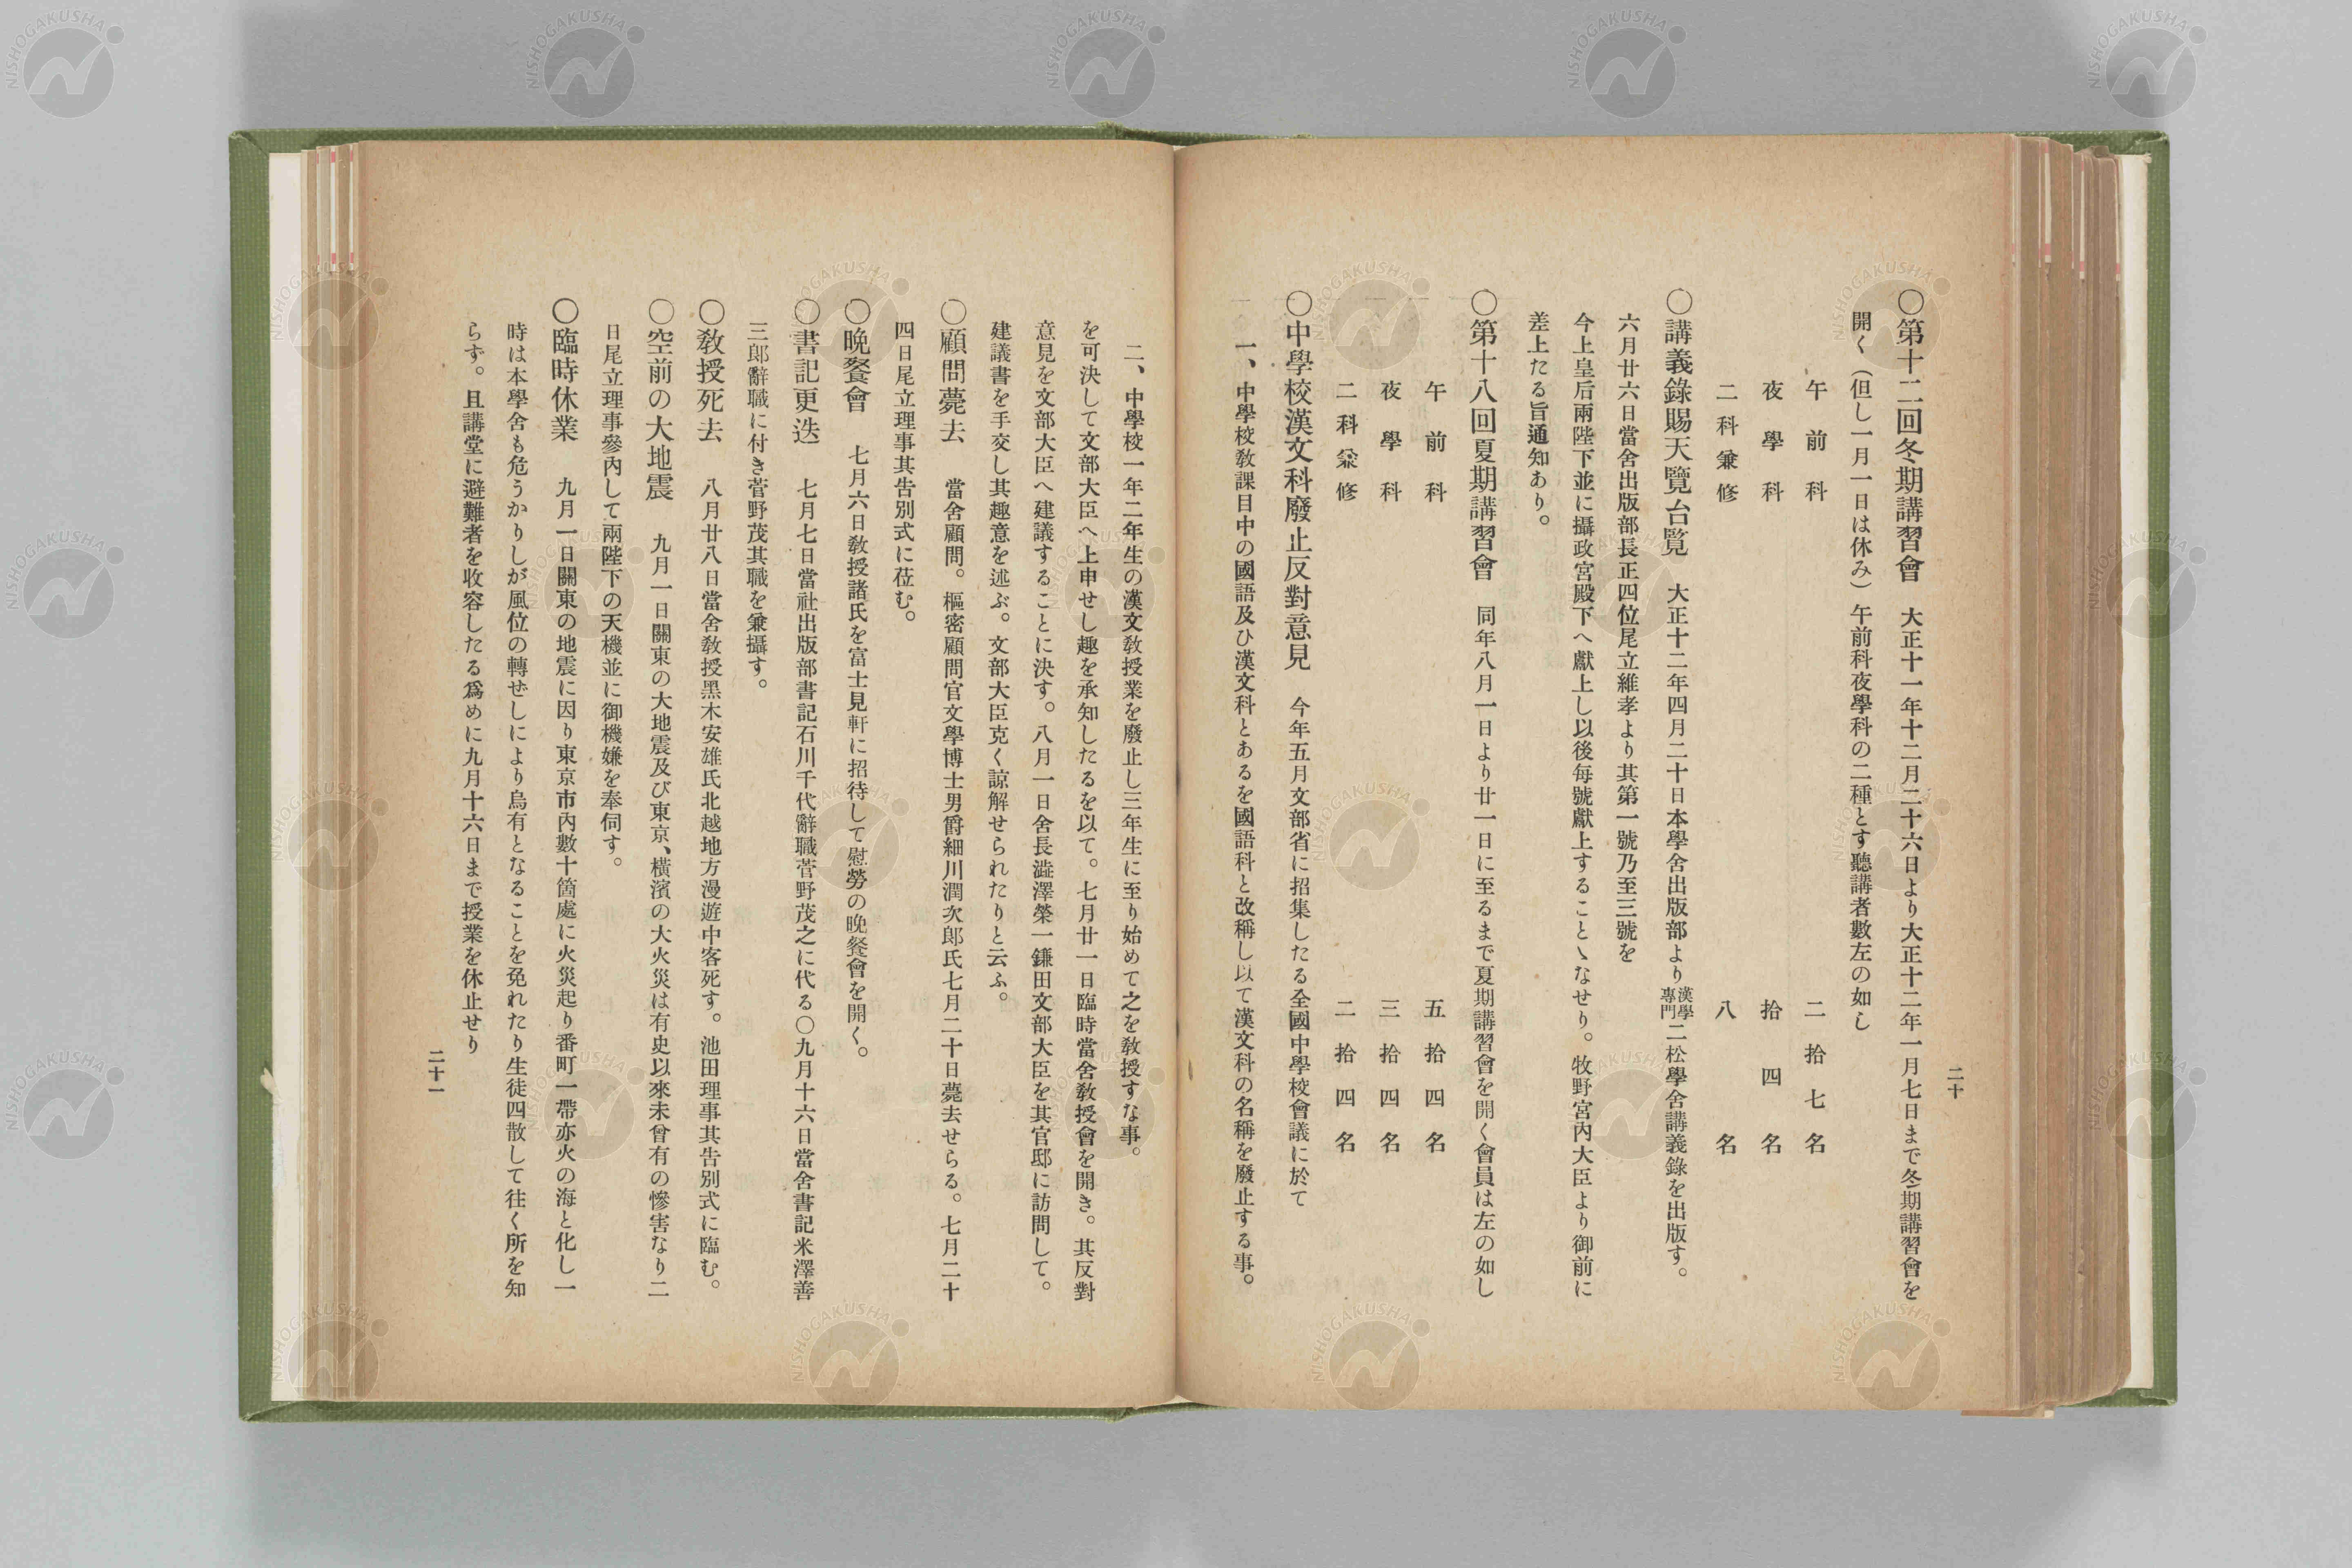 二十
〇第十二回冬期講習會　大正十一年十二月二十六日より大正十二年一月七日まで冬期講習會を
開く（但し一月一日は休み）午前科夜學科の二種とす聽講者數左の如し
午前科　二拾七名
夜學科　拾四名
二科兼修　八名
〇講義錄賜天覽台覽　大正十二年四月二十日本學舍出版部より漢學專門二松學舍講義錄を出版す。
六月廿六日當舍出版部長正四位尾立維孝より其第一號乃至三號を
今上皇后兩陛下並に攝政宮殿下へ獻上し以後每號獻上することヽなせり。牧野宮內大臣より御前に
差上たる旨通知あり。
〇第十八回夏期講習會　同年八月一日より廿一日に至るまで夏期講習會を開く會員は左の如し
午前科　五拾四名
夜學科　三拾四名
二科兼修　二拾四名
〇中學校漢文科廢止反對意見　今年五月文部省に招集したる全國中學校會議に於て
一、中學校敎課目中の國語及ひ漢文科とあるを國語科と改稱し以て漢文科の名稱を廢止する事。
二、中學校一年二年生の漢文敎授業を廢止し三年生に至り始めて之を敎授すな事。
を可決して文部大臣へ上申せし趣を承知したるを以て。七月廿一日臨時當舍敎授會を開き。其反對
意見を文部大臣へ建議することに決す。八月一日舍長澁澤榮一鎌田文部大臣を其官邸に訪問して。
建議書を手交し其趣意を述ぶ。文部大臣克く諒解せられたりと云ふ。
〇顧問薨去　當舍顧問。樞密顧問官文學博士男爵細川潤次郞氏七月二十日薨去せらる。七月二十
四日尾立理事其告別式に莅む。
〇晩餐會　七月六日敎授諸氏を富士見軒に招待して慰勞の晩餐會を開く。
〇書記更迭　七月七日當社出版部書記石川千代辭職菅野茂之に代る〇九月十六日當舍書記米澤善
三郞辭職に付き菅野茂其職を兼攝す。
〇敎授死去　八月廿八日當舍敎授黑木安雄氏北越地方漫遊中客死す。池田理事其告別式に臨む。
〇空前の大地震　九月一日關東の大地震及び東京、橫濱の大火災は有史以來未曾有の慘害なり二
日尾立理事參內して兩陛下の天機並に御機嫌を奉伺す。
〇臨時休業　九月一日關東の地震に因り東京市內數十箇處に火災起り番町一帶亦火の海と化し一
時は本學舍も危うかりしが風位の轉ぜしにより烏有となることを免れたり生徒四散して往く所を知
らず。且講堂に避難者を收容したる爲めに九月十六日まで授業を休止せり
二十一
NISHOGAKUSHA